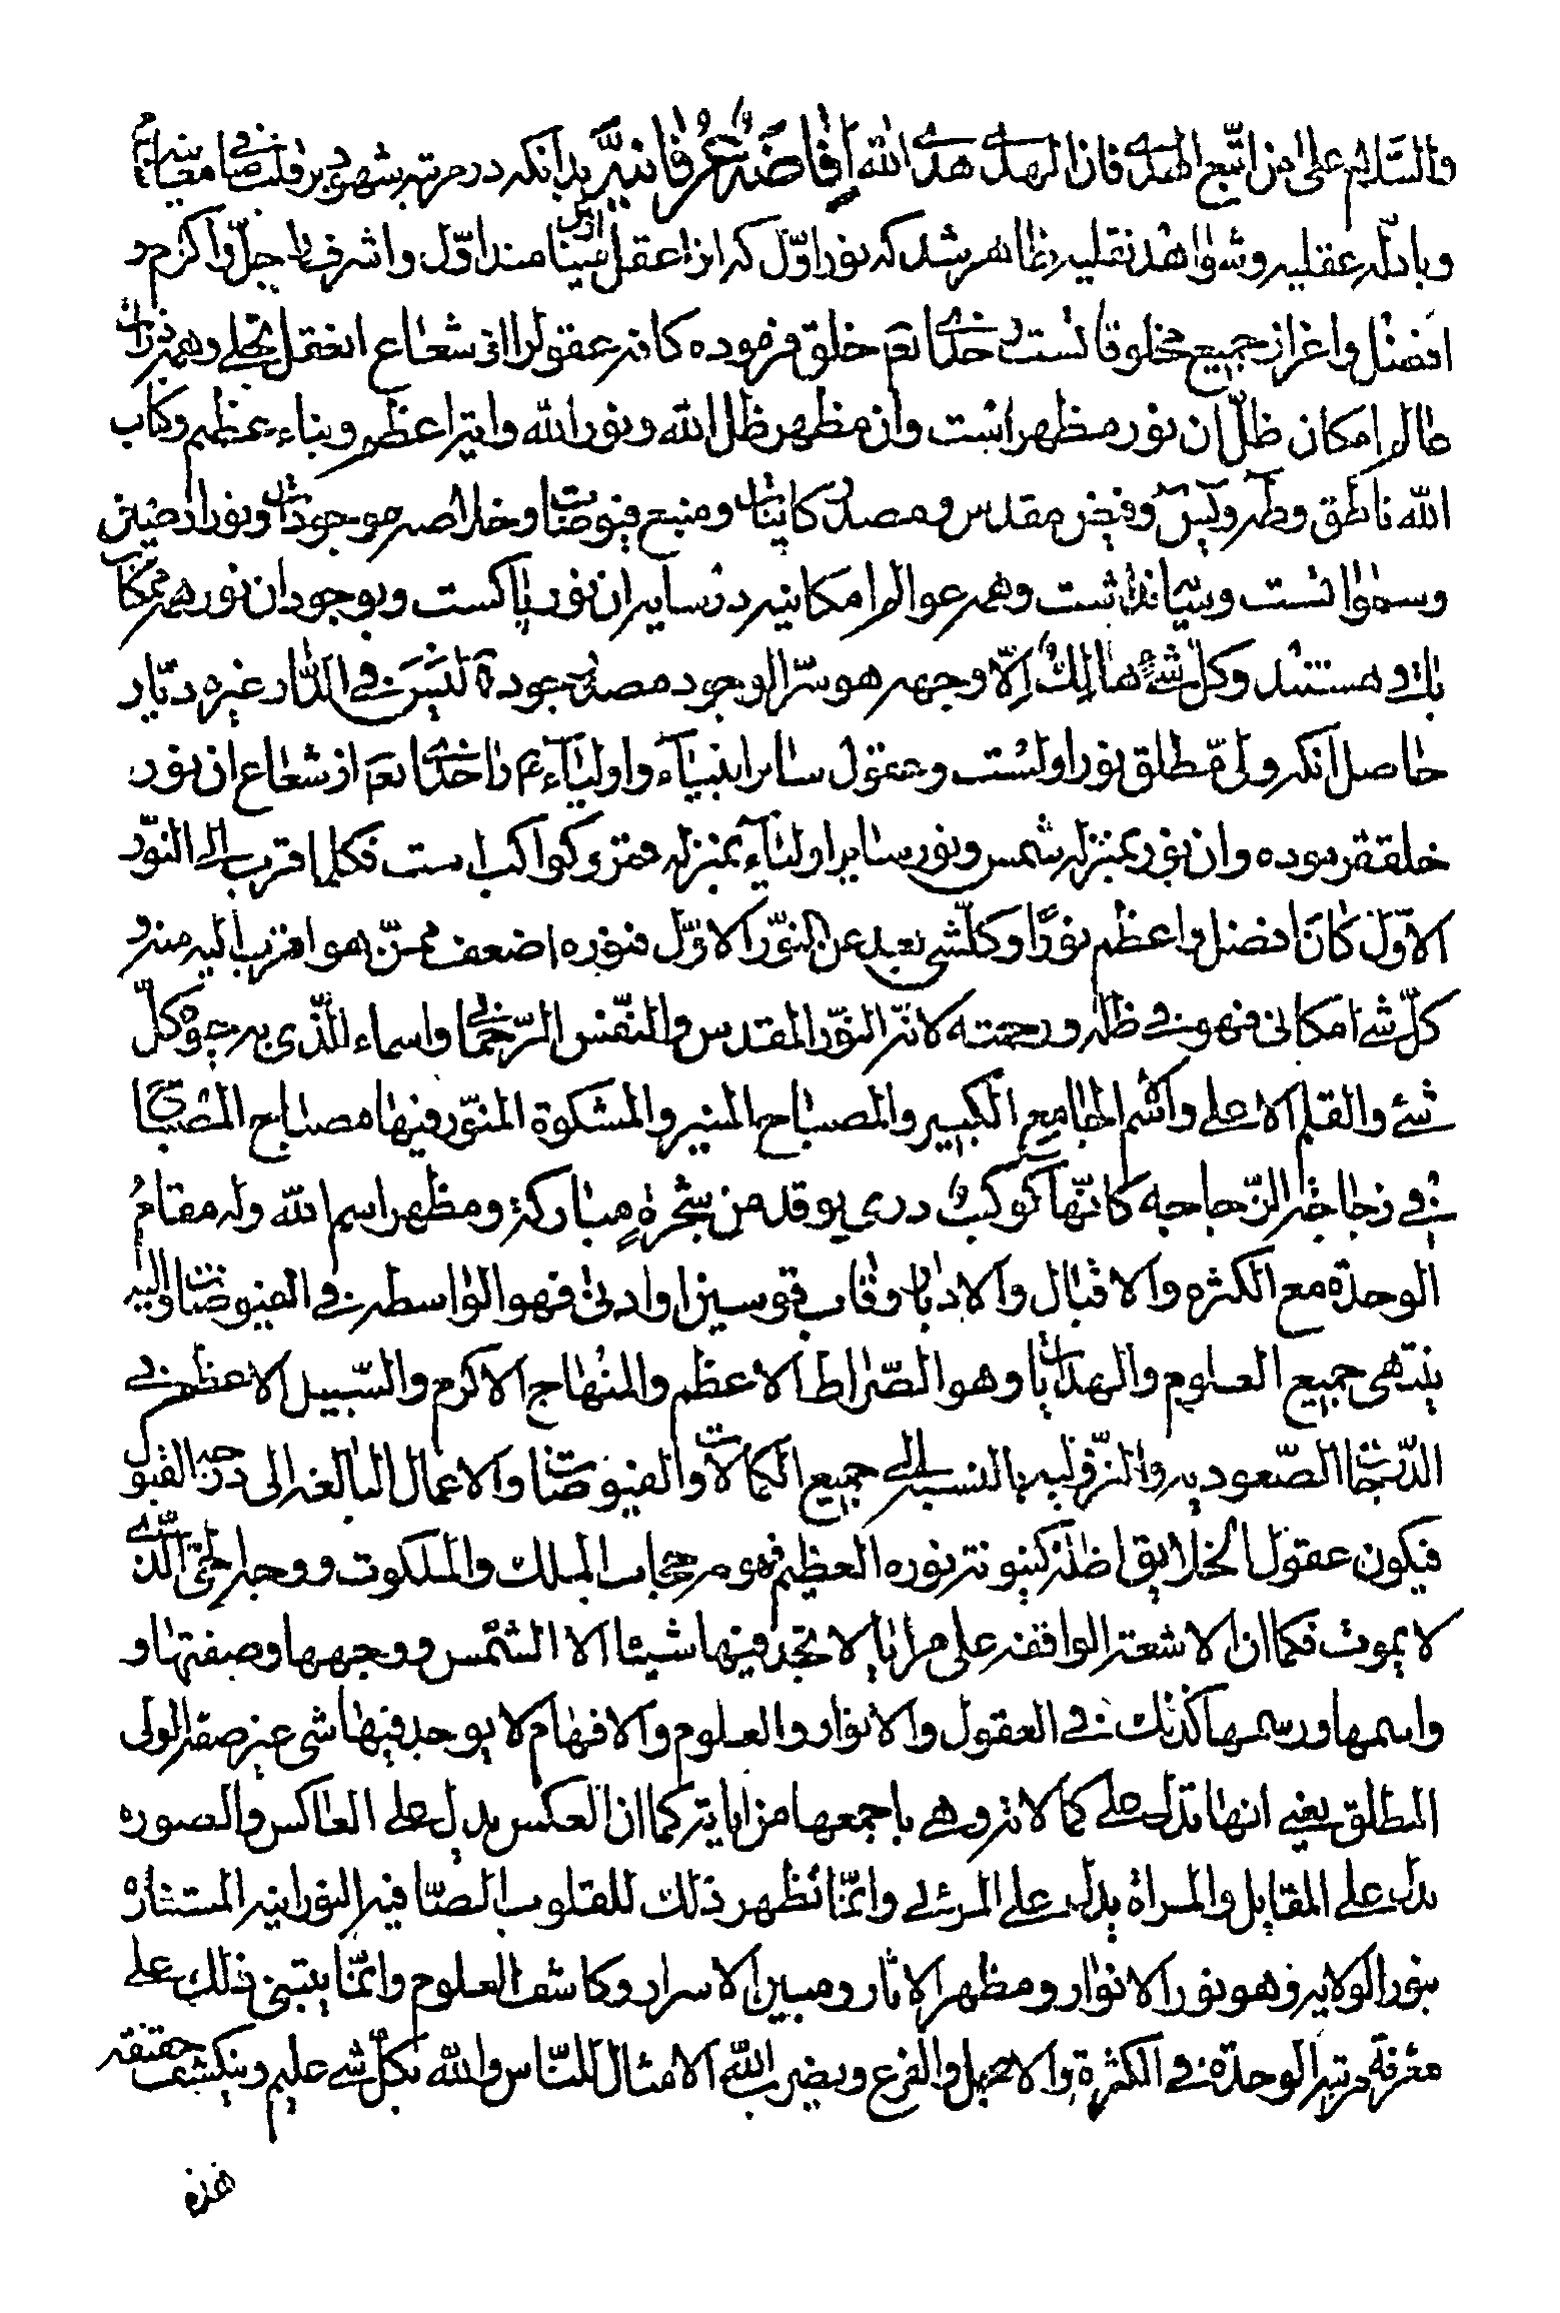 والسّلام علی من اتّبع الهدی فان الهدی هدی الله افاضة عرفانیّه بدانکه در مرتبه شهود بر قلب صافی
و بادلّه عقلیه و شواهد نقلیه ظاهر شد که نور اوّل که انرا عقل اول مینامند اوّل و اشرف و اجلّ و اکرم و
افضل و اعز از جمیع مخلوقاتست و خدای تعم خلق فرموده کافه عقول را از شعاع انعقل بجلی و همه ذرات
عالم امکان ظلّ ان نور مظهر است و ان مظهر ظل الله و نور الله و ایة اعظم و بناء عظیم و کتاب
الله ناطق و طه و یس و فیض مقدس و مصدر کاینات و منبع فیوضات و خلاصه موجودات و نور ارضین
و سمواتست و همه عوالم امکانیه در سایر ان نور پاکست و بوجود ان نور همه ممکنات
هستند و کل شیءٍ هالِکٌ اِلّا وجهه هو سرّ الوجود مصدر جوده لَیْسَ فی الدّار غیره دیّار
حاصل آنکه ولی مطلق نور اولست و عقول سایر انبیآء و اولیآء عم را خدای تعم از شعاع ان نور
خلق فرموده و ان نور بمنزله شمس و نور سایر اولیآء بمنزله قمر و کواکب است فکلما اقرب الی النّور
الاوّل کان افضل و اعظم نورًا و کلّشی بعید عن النّور الاوّل فنوره اضعف ممّن هو اقرب الیه منه و
کلّ شیء امکانی فهو فی ظلّه و رحمته لانّه النّور المقدس و النّفس الرّحمانی و اسماء الّذی به کلّ
شیء و القلم الاعلی و الاسم الجامع الکبیر و المصباح المنیر و المشکوة المنوّر فیها مصباح المصباح
فی زجاجة الزّجاجه کانّها کوکبٌ دری یوقد من شجرةٍ مبارکة و مظهر اسم الله و له مقامُ
الوحدة مع الکثره و الاقبال و الادبار و قاب قوسین او ادنی فهو الواسطه فی الفیوضات و الیه
ینتهی جمیع العلوم و الهدایات و هو الصّراط الاعظم و المنهاج الاکرم و السّبیل الاعظم فی
الدّرجات الصّعودیه و النّزولیه بالنسبة الی جمیع الکمالات و الفیوضات و الاعمال البالغه الی درجه القبول
فیکون عقول الخلایق اظلة کینونته نوره العظیم فهو حجاب الملک و الملکوت و وجه الحیّ الّذی
لا یموت فکما ان الاشعة الواقفة علی مرایا لا تجد فیها شیئا الا الشّمس و وجهها و صفتها و
و اسمها و رسمها کذلک فی العقول و الانوار و العلوم و الافهام لا یوجد فیها شی غیر صفة الولی
المطلق یعنی انها تدلّ علی کمالاته و هی باجمعها مرایا یته کما ان العکس یدل علی العاکس و الصوره
یدل علی المقابل و المراة یدل علی المرئی و انّما تظهر ذلک للقلوب الصّافیه النّورانیه المستنارة
بنور الولایه و هو نور الانوار و مظهر الاثار و مبین الاسرار و کاشف العلوم و انّما یبتنی ذلک علی
معرفة مرتبة الوحدة فی الکثرة و الاصل و الفرع و یضرب الله الامثال للنّاس و الله بکلّ شیء علیم و ینکشف حقیقة
هذه